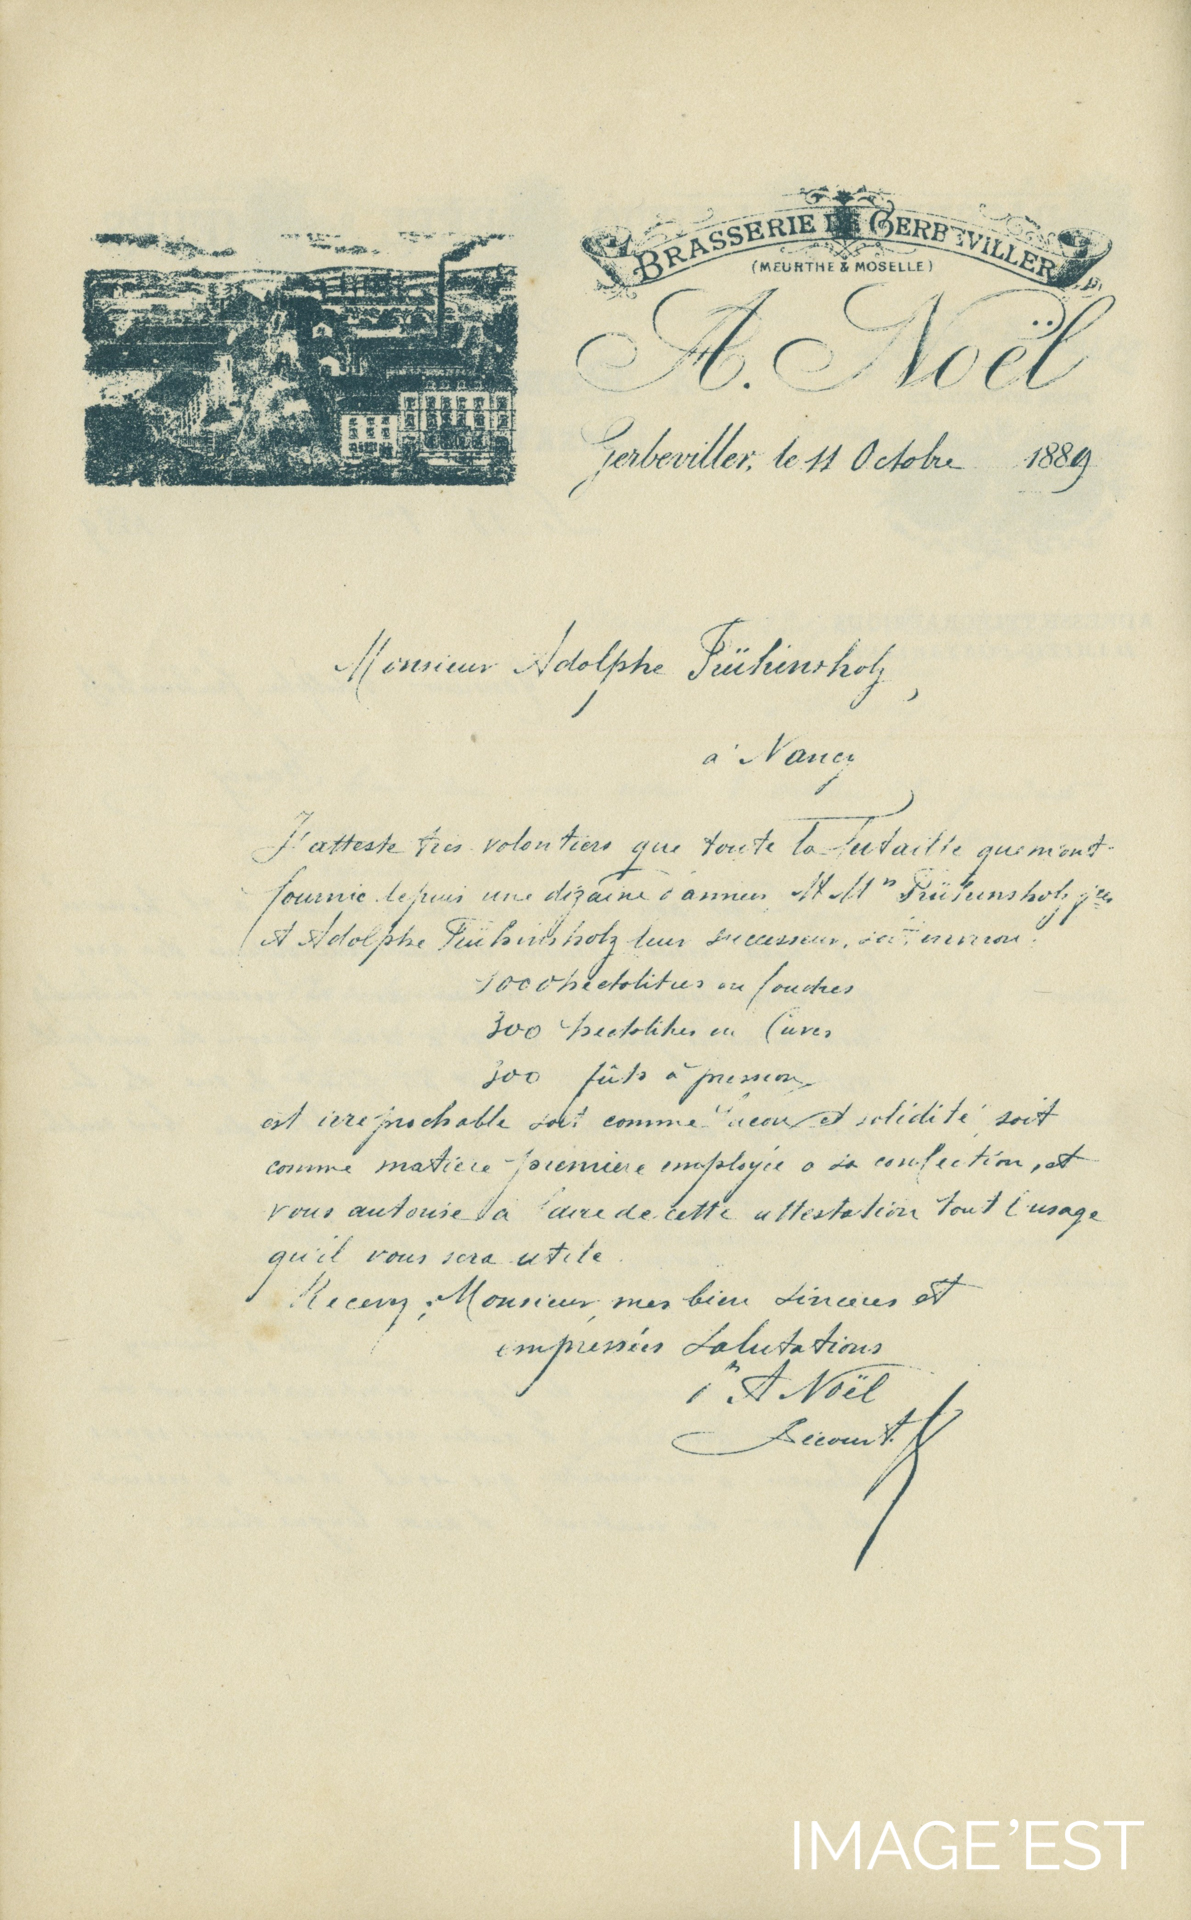 BRASSERIE DE GERBEVILLER
(MEURTHE & MOSELLE)
A. Noël
Gerbeviller, le 11 Octobre 1889
Monsieur Adolphe Frühinsholz,
à Nancy
J'atteste très volontiers que toute la futaille que m'ont
fournie depuis une dizaine d'années M M Frühinsholz
A Adolphe Frühinsholz leur successeur, soit environ:
1000 hectolitres en foudres
300 hectolitres en Cuves
300 fûts à pression
est irréprochable soit comme façon et solidité, soit
comme matière première employée à sa confection, et
vous autorise à faire de cette attestation tout l'usage
qu'il vous sera utile.
Recevez, Monsieur, mes bien sincères et
empressées salutations
A Noël
IMAGE'EST